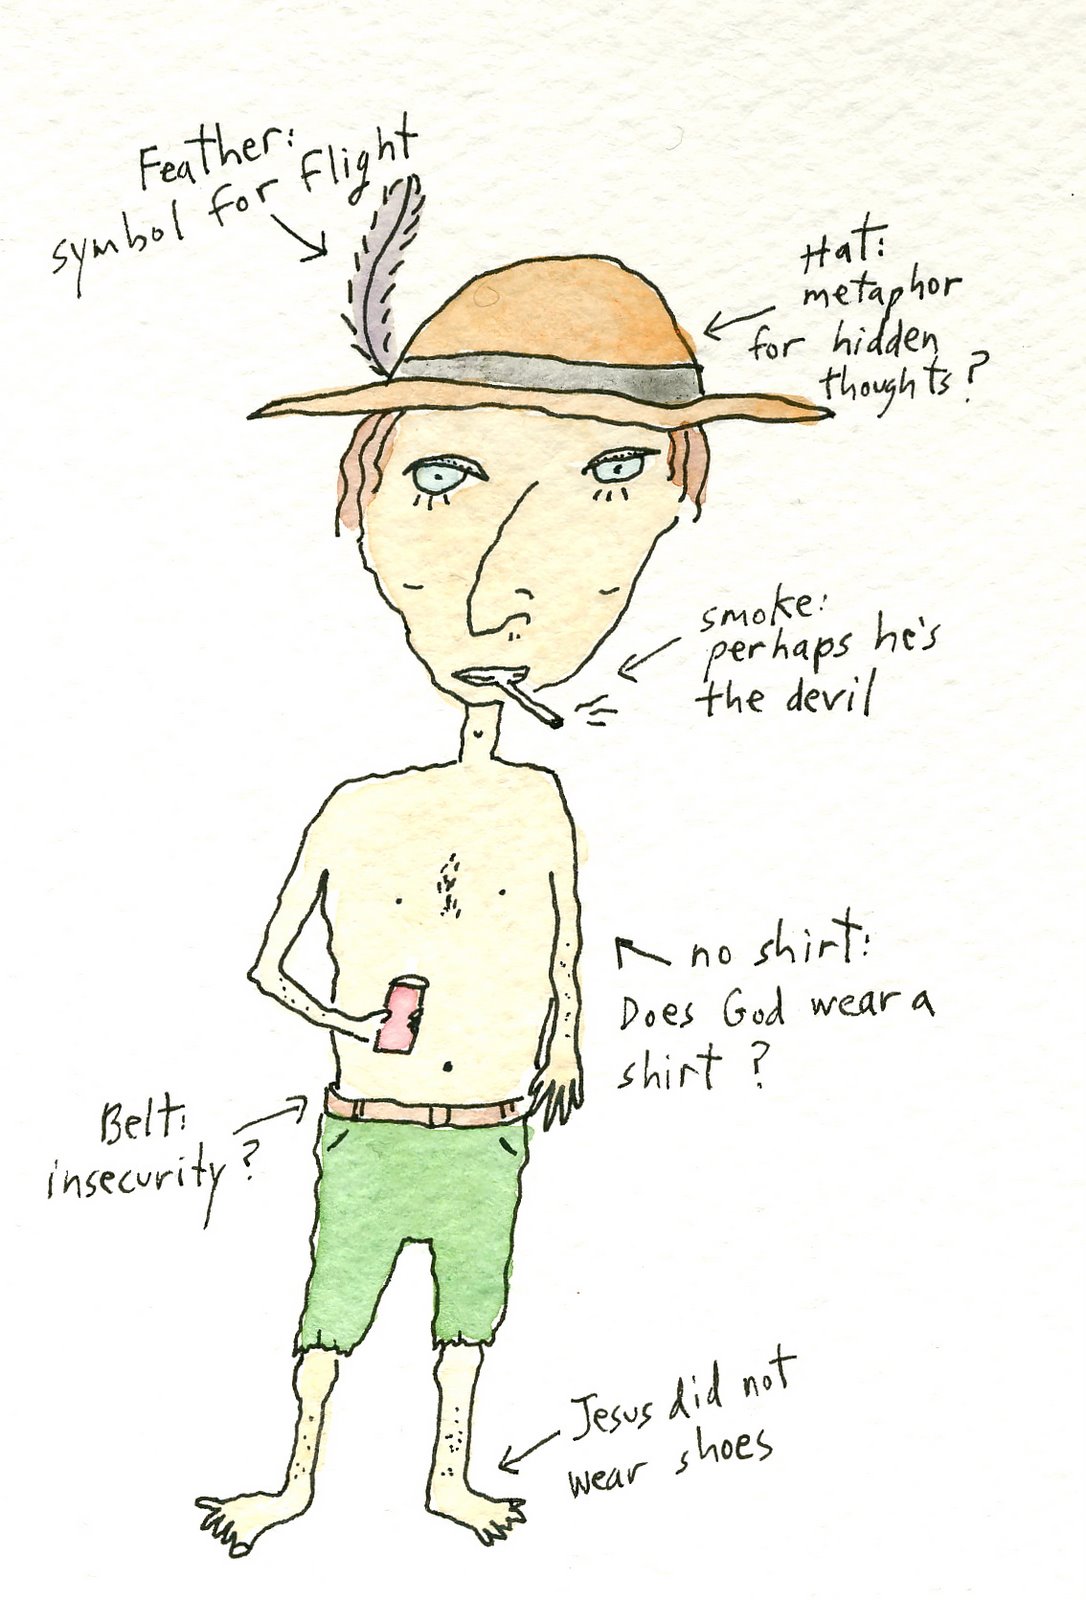 Feather:
symbol for flight
Hat:
metaphor
for hidden
thoughts?
smoke:
perhaps he's
the devil
no shirt:
Does God wear a
shirt?
Belt:
insecurity?
Jesus did not
wear shoes